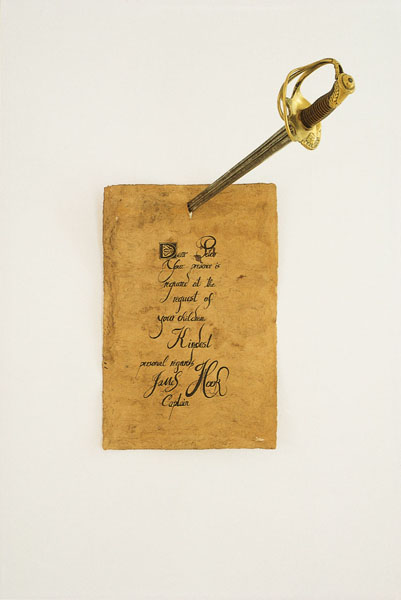 Dear Peter
Your presence is
required at the
request of
your children
Kindest
personal regards
James Hook
Captain